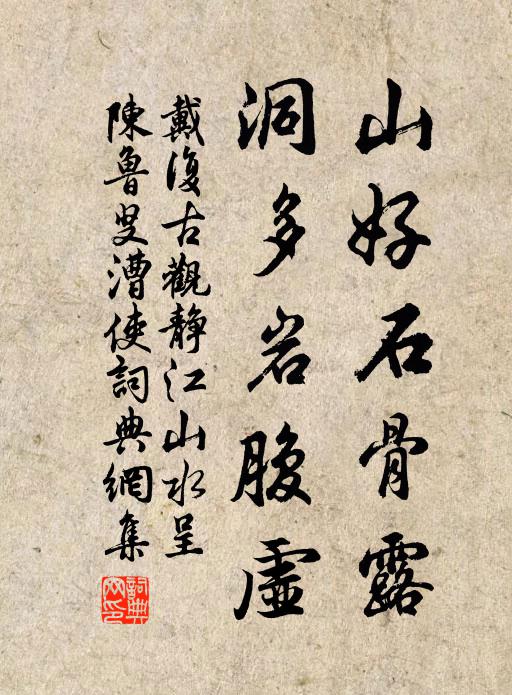 山好石骨露
洞多岩腹虛
戴復古觀靜江山水呈
陳魯叟漕使詞典網集
詞典網印